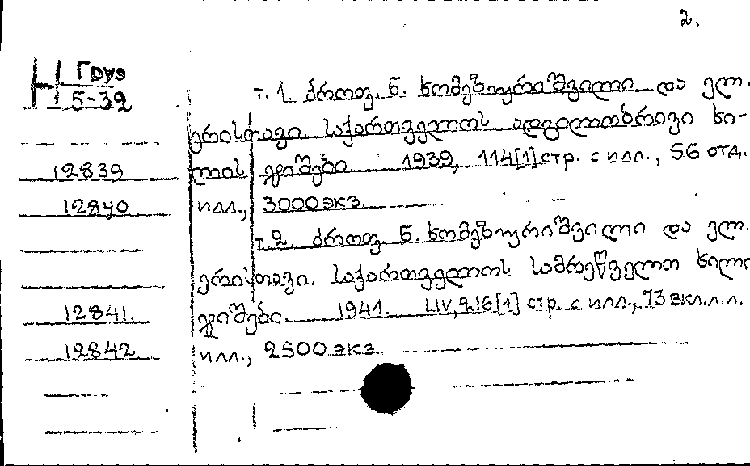 2.
Н Груз
5-32
т. 1. პროფ. ნ. ხომეზურიშვილი და ელ.
ერისთავი საქართველოს ადგილობრივი ხი-
12839 ლის ჯიშები 1939, 114[1] стр. с илл., 56 отд.
12840 илл., 3000 экз
т. 2 პროფ. ნ. ხომეზურიშვილი და ელ.
ერისთავი. საქართველოს სამრეწველო ხილი
12841. ჯიშები. 1941. LIV, 216[1] стр. с илл., 73 вкл.л.
12842 илл., 2500 экз